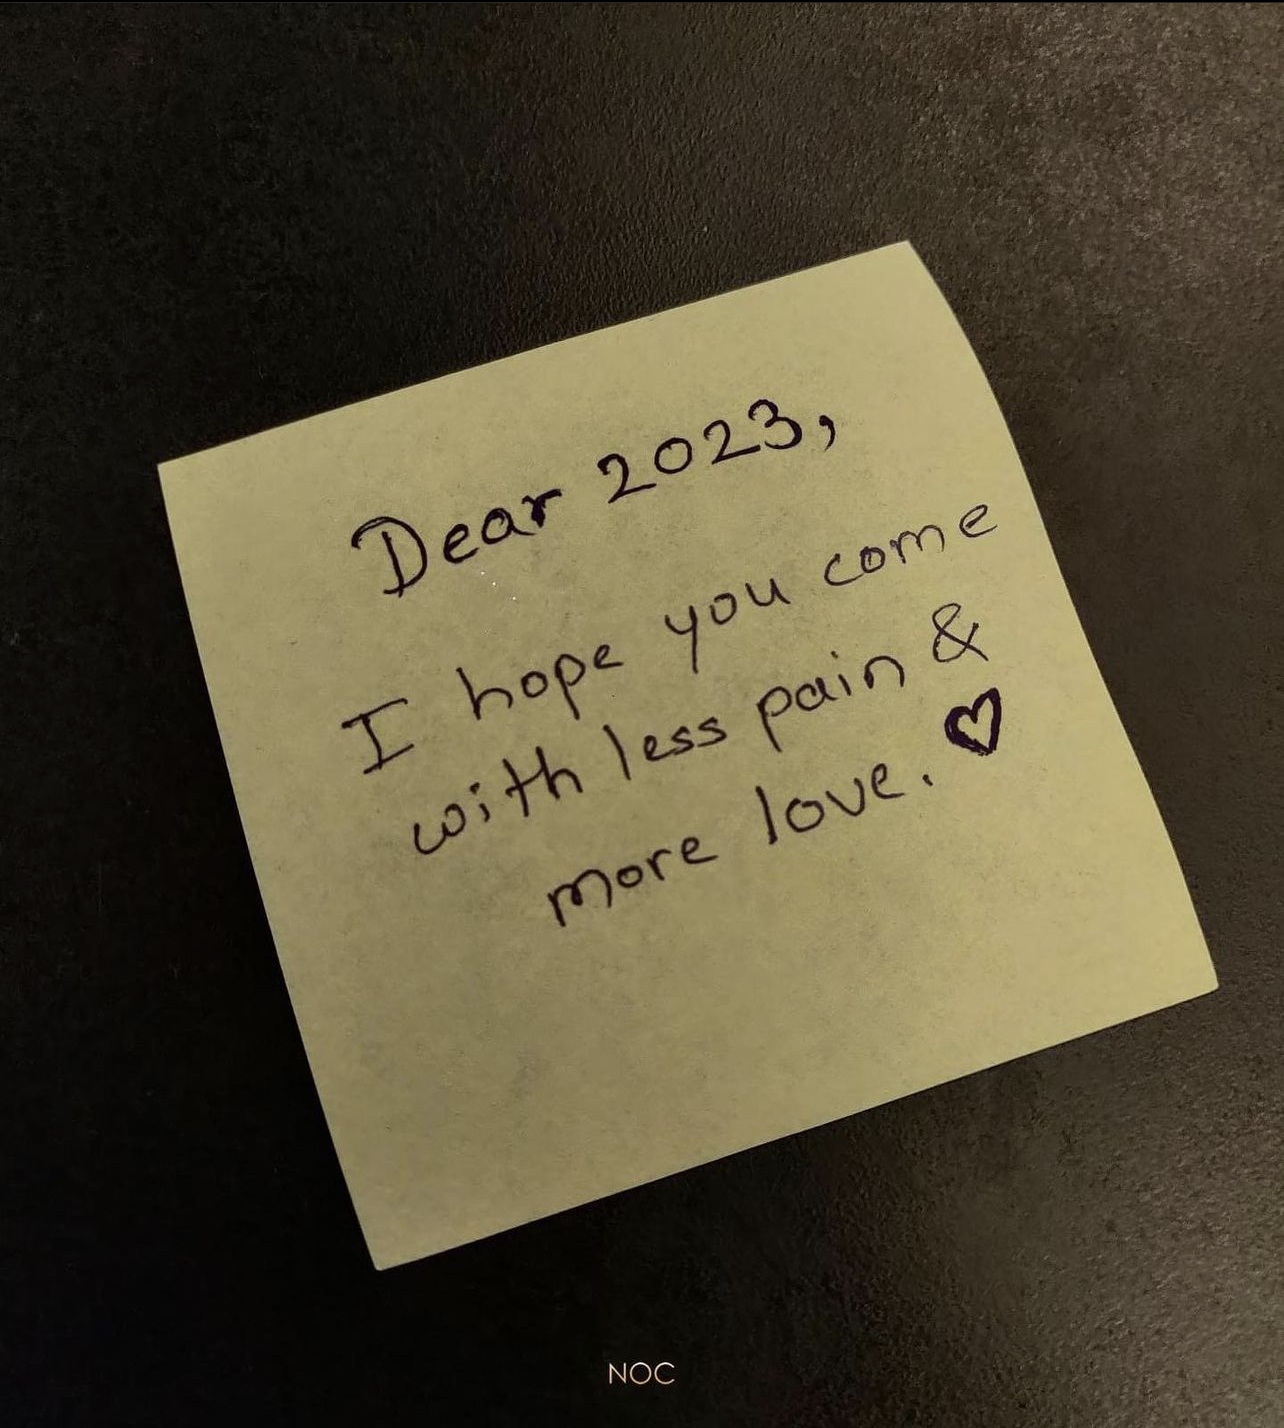 Dear 2023,
I hope you come
with less pain &
more love. ♡
NOC